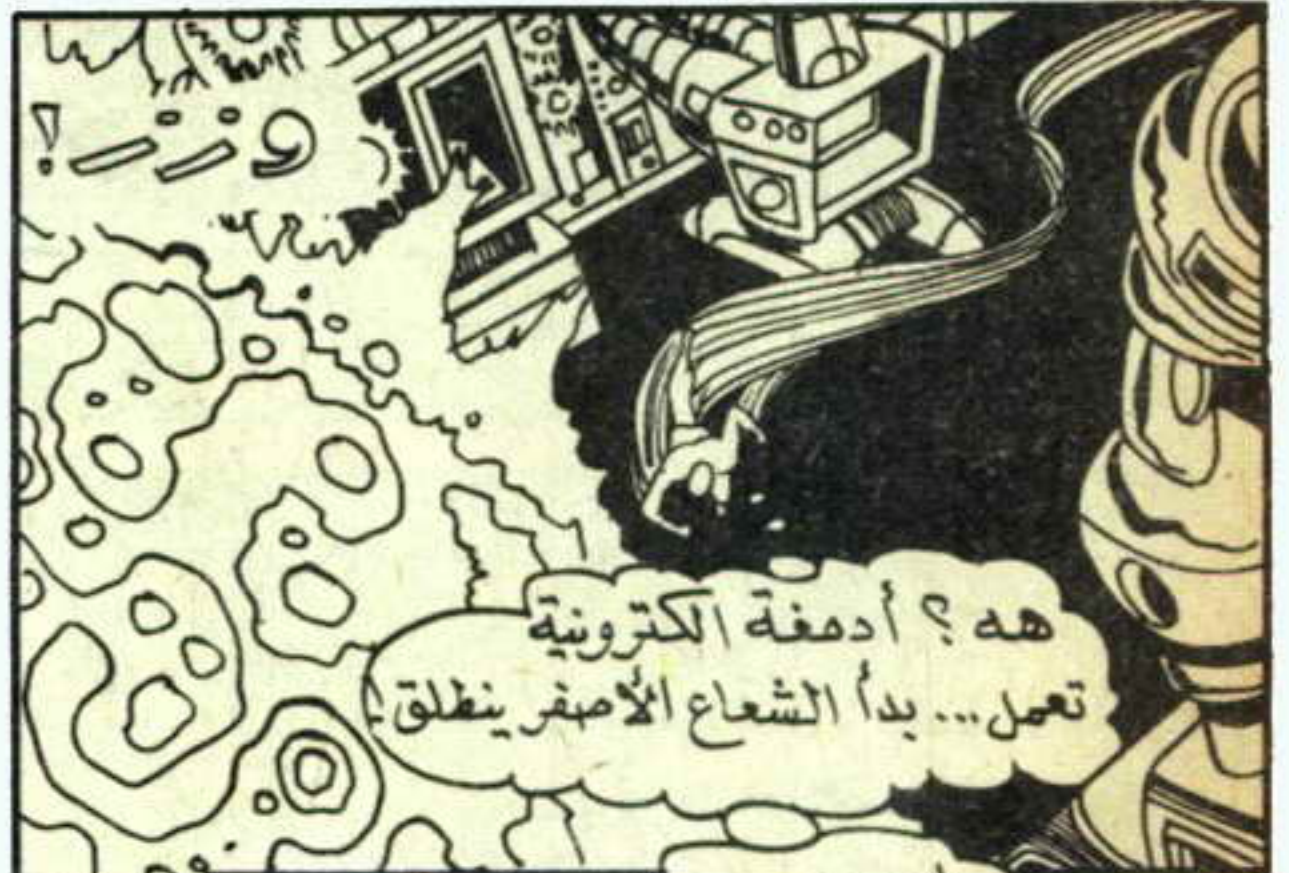 وزز!
هه ؟ أدمغة الكترونية
تعمل... بدأ الشعاع الأصفر ينطلق!